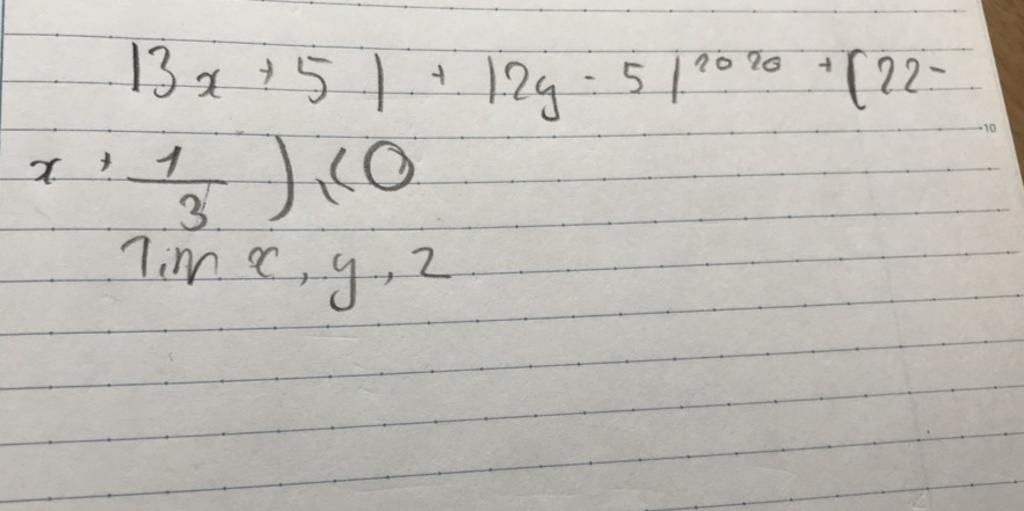 |3x + 5| + |2y - 5|²⁰²⁰ + (2z -
x + 1/3) ≤ 0
Tìm x, y, z
10